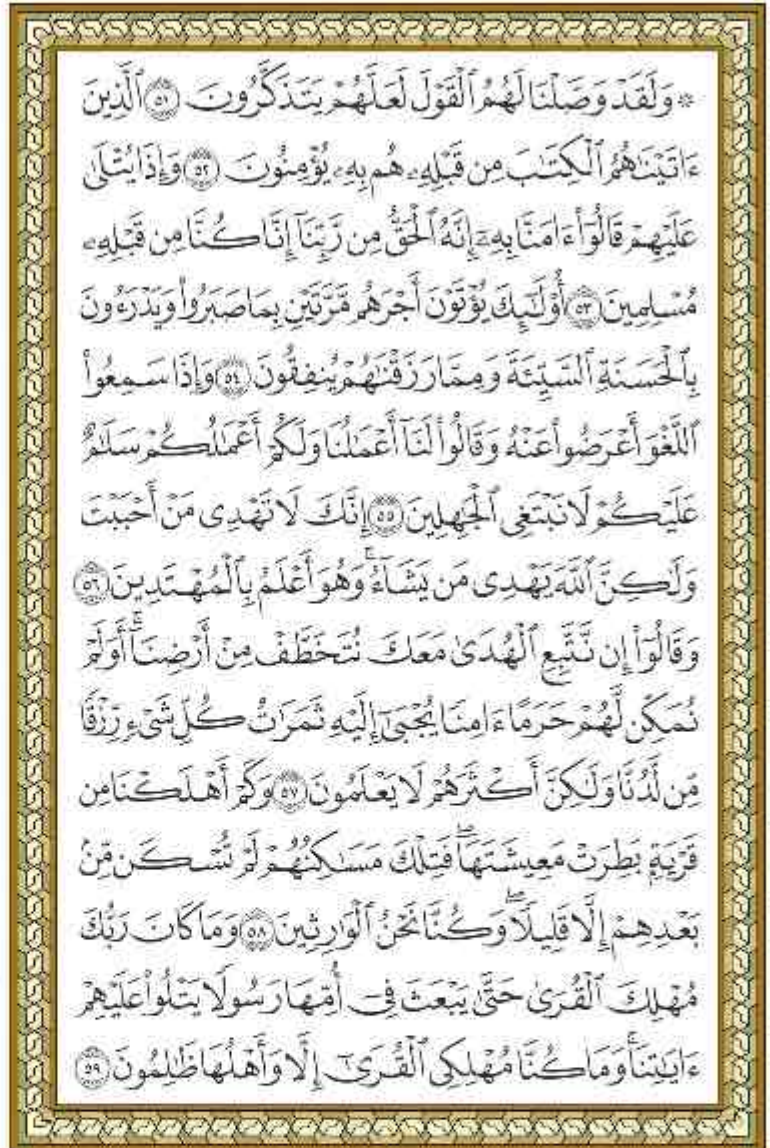 ۞ وَلَقَدْ وَصَّلْنَا لَهُمُ ٱلْقَوْلَ لَعَلَّهُمْ يَتَذَكَّرُونَ ۝٥١ ٱلَّذِينَ
ءَاتَيْنَٰهُمُ ٱلْكِتَٰبَ مِن قَبْلِهِۦ هُم بِهِۦ يُؤْمِنُونَ ۝٥٢ وَإِذَا يُتْلَىٰ
عَلَيْهِمْ قَالُوٓا۟ ءَامَنَّا بِهِۦٓ إِنَّهُ ٱلْحَقُّ مِن رَّبِّنَآ إِنَّا كُنَّا مِن قَبْلِهِۦ
مُسْلِمِينَ ۝٥٣ أُو۟لَٰٓئِكَ يُؤْتَوْنَ أَجْرَهُم مَّرَّتَيْنِ بِمَا صَبَرُوا۟ وَيَدْرَءُونَ
بِٱلْحَسَنَةِ ٱلسَّيِّئَةَ وَمِمَّا رَزَقْنَٰهُمْ يُنفِقُونَ ۝٥٤ وَإِذَا سَمِعُوا۟
ٱللَّغْوَ أَعْرَضُوا۟ عَنْهُ وَقَالُوا۟ لَنَآ أَعْمَٰلُنَا وَلَكُمْ أَعْمَٰلُكُمْ سَلَٰمٌ
عَلَيْكُمْ لَا نَبْتَغِى ٱلْجَٰهِلِينَ ۝٥٥ إِنَّكَ لَا تَهْدِى مَنْ أَحْبَبْتَ
وَلَٰكِنَّ ٱللَّهَ يَهْدِى مَن يَشَآءُ ۚ وَهُوَ أَعْلَمُ بِٱلْمُهْتَدِينَ ۝٥٦
وَقَالُوٓا۟ إِن نَّتَّبِعِ ٱلْهُدَىٰ مَعَكَ نُتَخَطَّفْ مِنْ أَرْضِنَآ ۚ أَوَلَمْ
نُمَكِّن لَّهُمْ حَرَمًا ءَامِنًا يُجْبَىٰٓ إِلَيْهِ ثَمَرَٰتُ كُلِّ شَىْءٍ رِّزْقًا
مِّن لَّدُنَّا وَلَٰكِنَّ أَكْثَرَهُمْ لَا يَعْلَمُونَ ۝٥٧ وَكَمْ أَهْلَكْنَا مِن
قَرْيَةٍۭ بَطِرَتْ مَعِيشَتَهَا ۖ فَتِلْكَ مَسَٰكِنُهُمْ لَمْ تُسْكَن مِّنۢ
بَعْدِهِمْ إِلَّا قَلِيلًا ۖ وَكُنَّا نَحْنُ ٱلْوَٰرِثِينَ ۝٥٨ وَمَا كَانَ رَبُّكَ
مُهْلِكَ ٱلْقُرَىٰ حَتَّىٰ يَبْعَثَ فِىٓ أُمِّهَا رَسُولًا يَتْلُوا۟ عَلَيْهِمْ
ءَايَٰتِنَا ۚ وَمَا كُنَّا مُهْلِكِى ٱلْقُرَىٰٓ إِلَّا وَأَهْلُهَا ظَٰلِمُونَ ۝٥٩